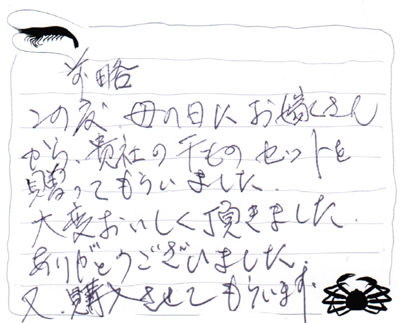 前略
この度 母の日にお嫁さん
から、貴社の干もののセットを
贈ってもらいました。
大変おいしく頂きました。
ありがとうございました。
又、購入させてもらいます。